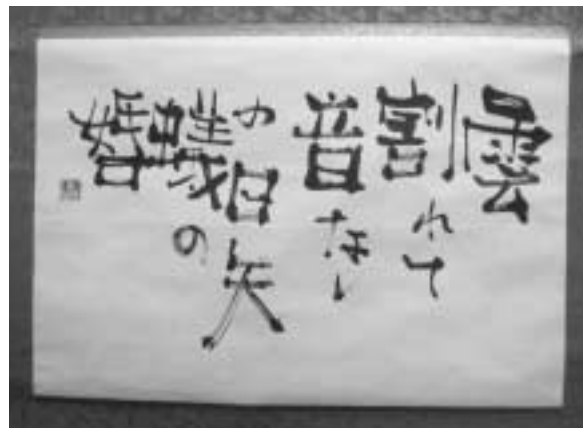 雲
割れて
音なし
の日矢
蟻の
婚